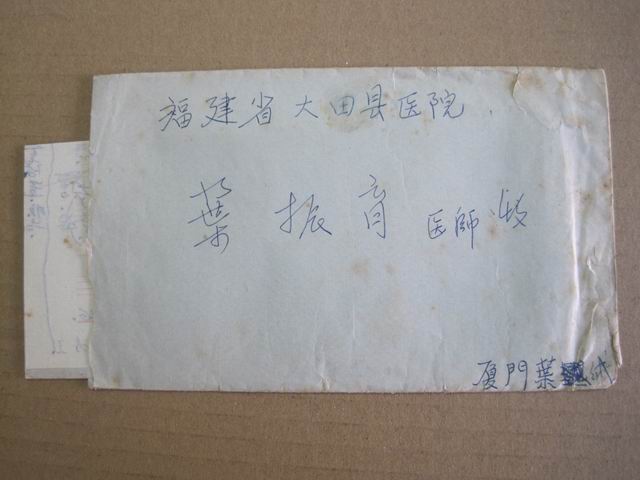 福建省大田县医院
葉振育 医師
厦門葉